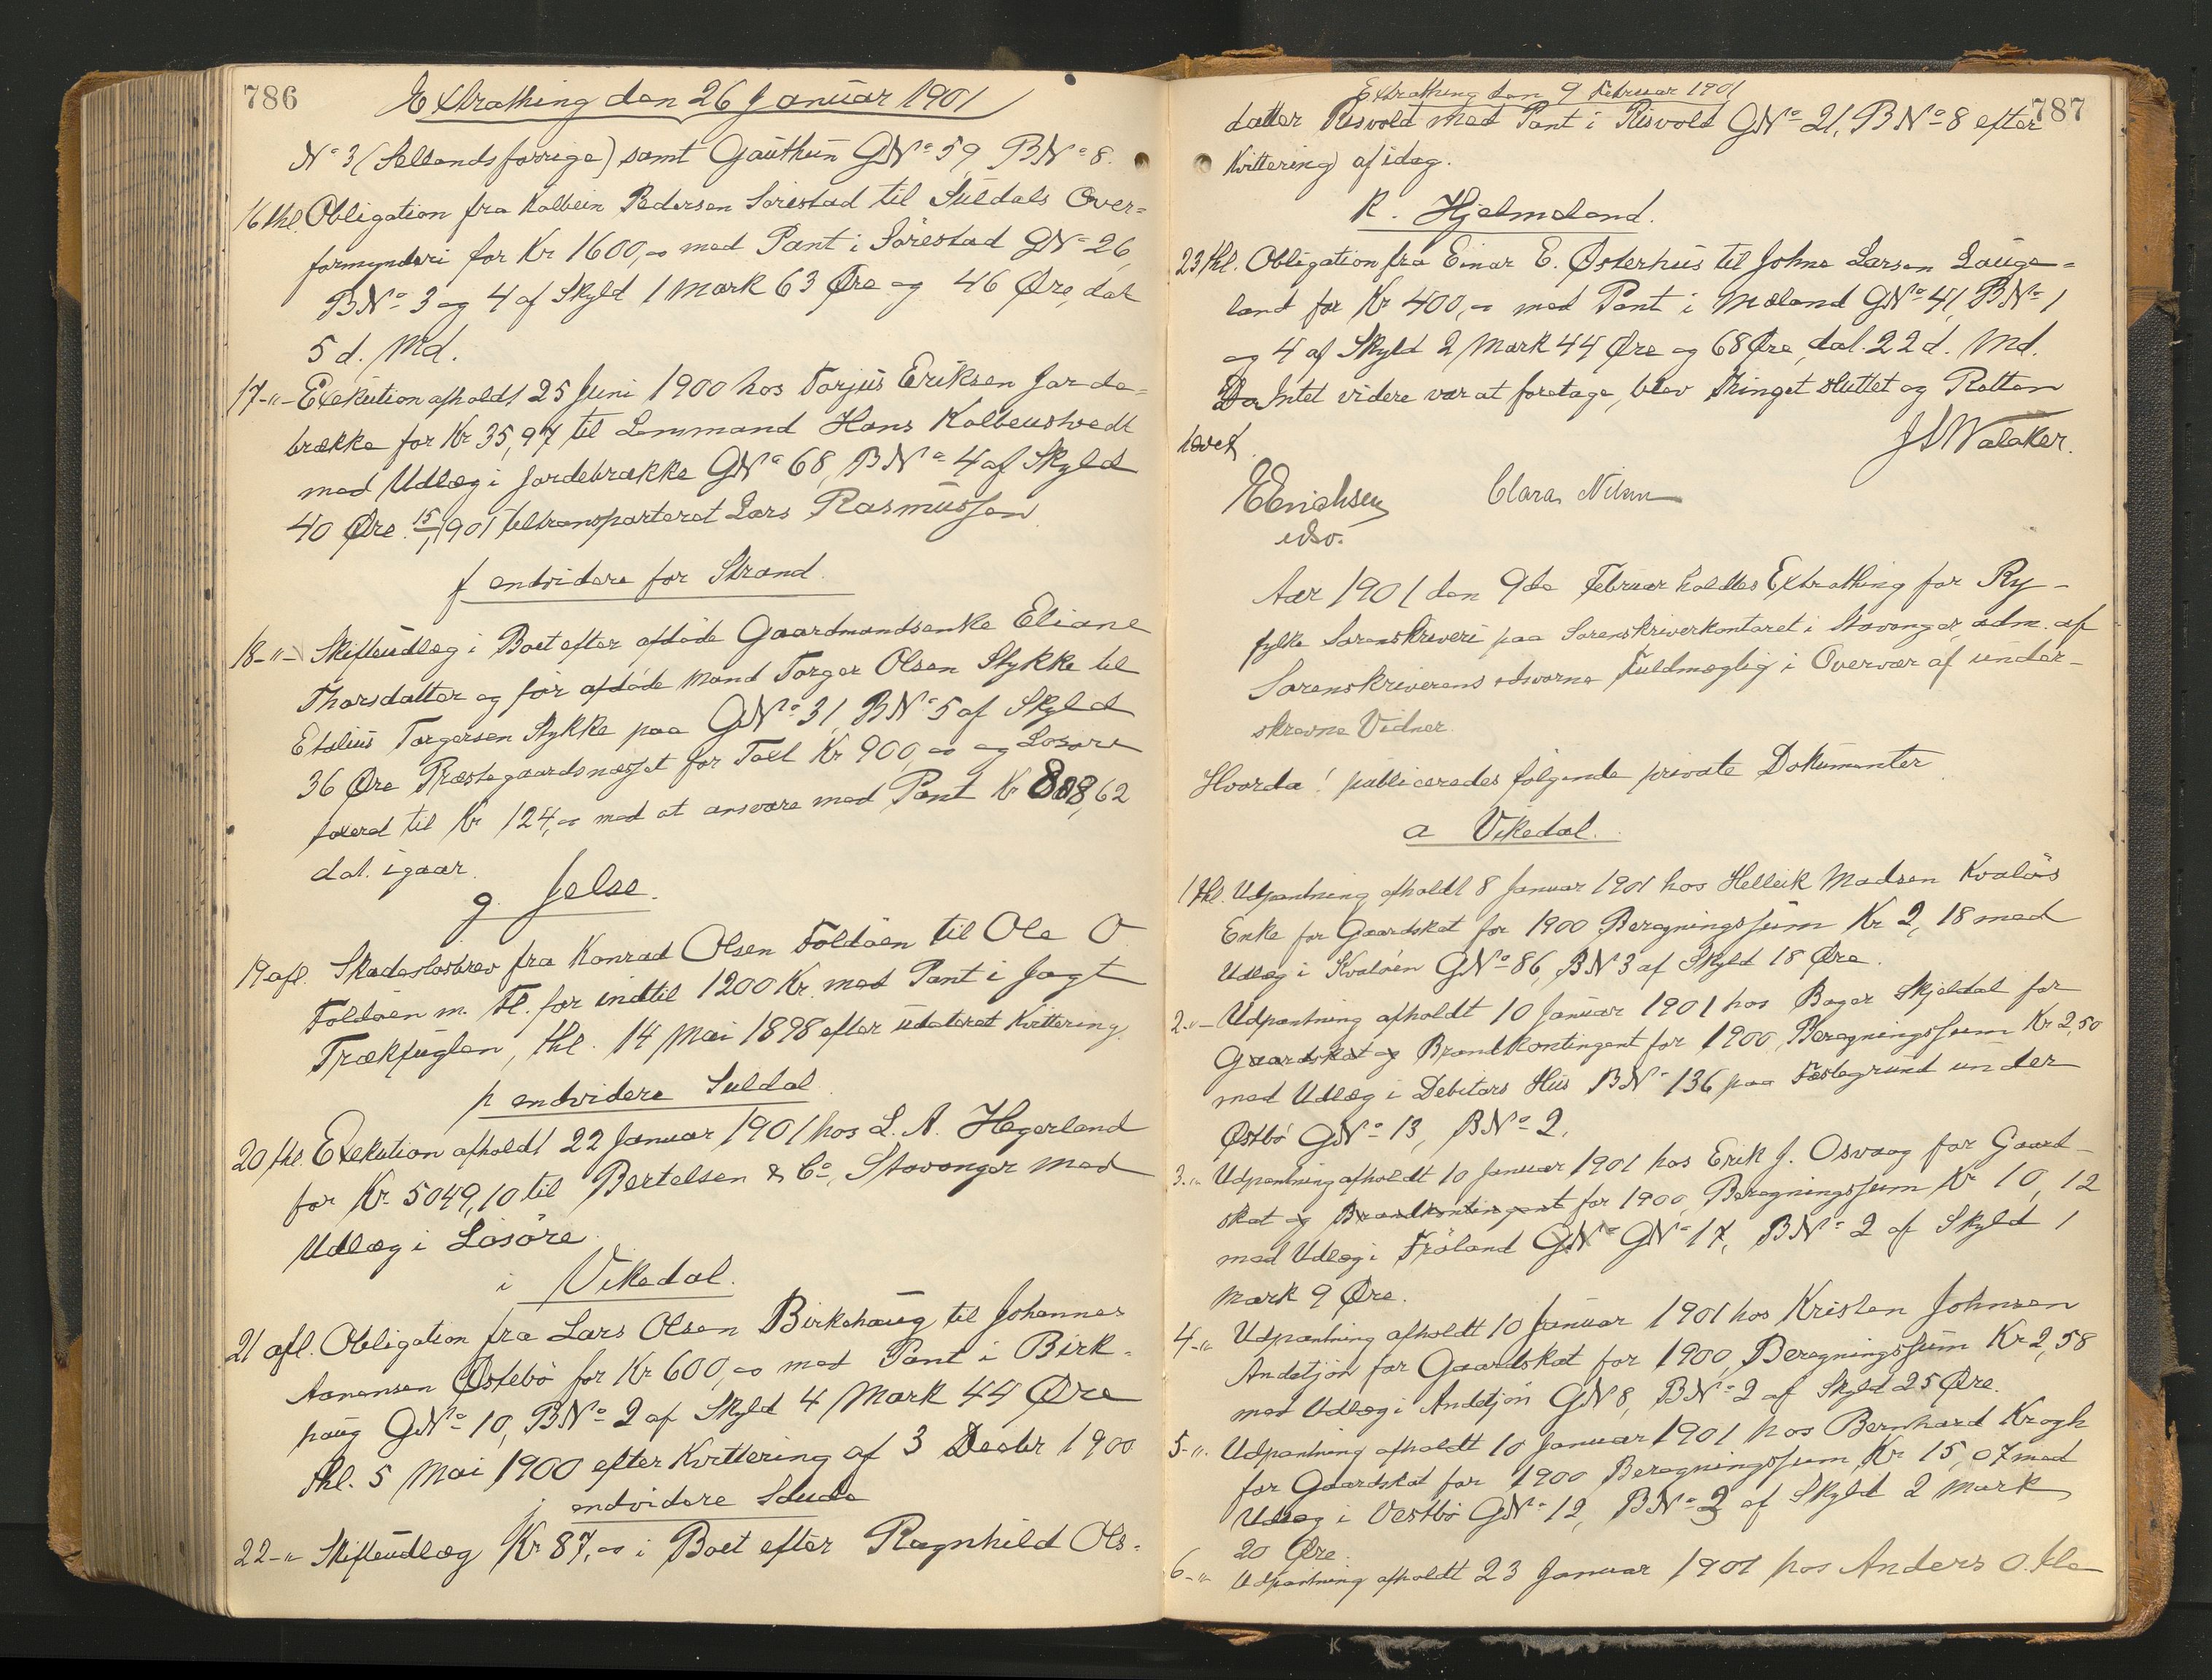 786
Extrathing den 26 Januar 1901
No 3 (Sellandsforrige) samt Gauthun GNo 59, BNo 8.
16 thl. Obligation fra Kolbein Pedersen Sørestad til Suldals Over-
formynderi for Kr 1600,- med Pant i Sørestad GN 26,
BNo 3 og 4 af Skyld 1 Mark 63 Øre og 46 Øre, dat
5 d. Md.
17-"- Exekution afholdt 25 Juni 1900 hos Torjus Eriksen Jorde-
brække for Kr 35,97 til Lensmand Hans Kolbenstvedt
med Udlæg i Jordebrække GNo 68, BNo 4 af Skyld
40 Øre. 15/1 1901 tiltransporteret Lars Rasmussen
f endvidere for Strand.
18-"- Skifteudlæg i Boet efter afdøde Gaardmandsenke Eliane
Thorsdatter og før afdøde Mand Torger Olsen Stykke til
Etalius Torgersen Stykke paa GNo 31, BNo 5 af Skyld
36 Øre Præstegaardsnæsset for Taxt Kr 900,- og Løsøre
taxerd til Kr 124,- med at ansvare med Pant Kr 808,62
dat. igaar.
g. Jelse.
19 afl. Skadesløsbrev fra Konrad Olsen Foldøen til Ole O
Foldøen m. Fl. for indtil 1200 Kr. med Pant i Jagt
Trækfuglen, thl. 14 Mai 1898 efter udateret Kvittering.
h endvidere Suldal.
20 thl. Exekution afholdt 22 Januar 1901 hos L. A. Hegerland
for Kr. 5049,10 til Bertelsen & Co, Stavanger med
Udlæg i Løsøre.
i Vikedal.
21 afl. Obligation fra Lars Olsen Birkehaug til Johannes
Aanensen Østebø for Kr 600,- med Pant i Birk-
haug GNo 10, BNo 2 af Skyld 4 Mark 44 Øre
thl. 5 Mai 1900 efter Kvittering af 3 Decbr 1900
j endvidere Saude
22-"- Skifteudlæg Kr 87,- i Boet efter Ragnhild Ols-
787
Extrathing den 9 Februar 1901
datter Risvold med Pant i Risvold GNo 21, BNo 8 efter
Kvittering af idag.
k. Hjelmeland.
23 thl. Obligation fra Einar E. Østerhus til Johne Larsen Lauge-
land for Kr 400,- med Pant i Mæland GNo 41, BNo 1
og 4 af Skyld 2 Mark 44 Øre og 68 Øre, dat. 22 d. Md.
Da Intet videre var at foretage, blev Thinget sluttet og Retten
hævet.
J S Walaker.
E Erichsen Clara Nilsen
edsv.
Aar 1901 den 9de Februar holdtes Extrathing for Ry-
fylke Sorenskriveri paa Sorenskriverkontoret i Stavanger, adm. af
Sorenskriverens edsvorne Fuldmægtig i Overvær af under-
skrevne Vidner.
Hvorda! publiceredes følgende private Dokumenter
a Vikedal.
1 thl. Udpantning afholdt 8 Januar 1901 hos Helleik Madsen Kvaløs
Enke for Gaardskat for 1900 Beregningssum Kr 2,18 med
Udlæg i Kvaløen GNo 86, BN 3 af Skyld 18 Øre.
2-"- Udpantning afholdt 10 Januar 1901 hos Bager Skjeldal for
Gaardskat og Brandkontingent for 1900, Beregningssum Kr 2,50
med Udlæg i Debitors Hus BNo 136 paa Fæstegrund under
Østbø GNo 13, BNo 2.
3-"- Udpantning afholdt 10 Januar 1901 hos Erik J. Osvaag for Gaard-
skat og Brandkontingent for 1900, Beregningssum Kr 10,12
med Udlæg i Frøland GNo GNo 17, BNo 2 af Skyld 1
Mark 9 Øre.
4-"- Udpantning afholdt 10 Januar 1901 hos Kristen Johnsen
Andetjøn for Gaardskat for 1900, Beregningssum Kr 2,58
med Udlæg i Andetjøn GN 8, BNo 2 af Skyld 25 Øre.
5-"- Udpantning afholdt 10 Januar 1901 hos Bernhard Krogh
for Gaardskat for 1900 Beregningssum Kr 15,07 med
Udlæg i Vestbø GNo 12, BNo 2 af Skyld 2 Mark
20 Øre.
6-"- Udpantning afholdt 23 Januar 1901 hos Anders